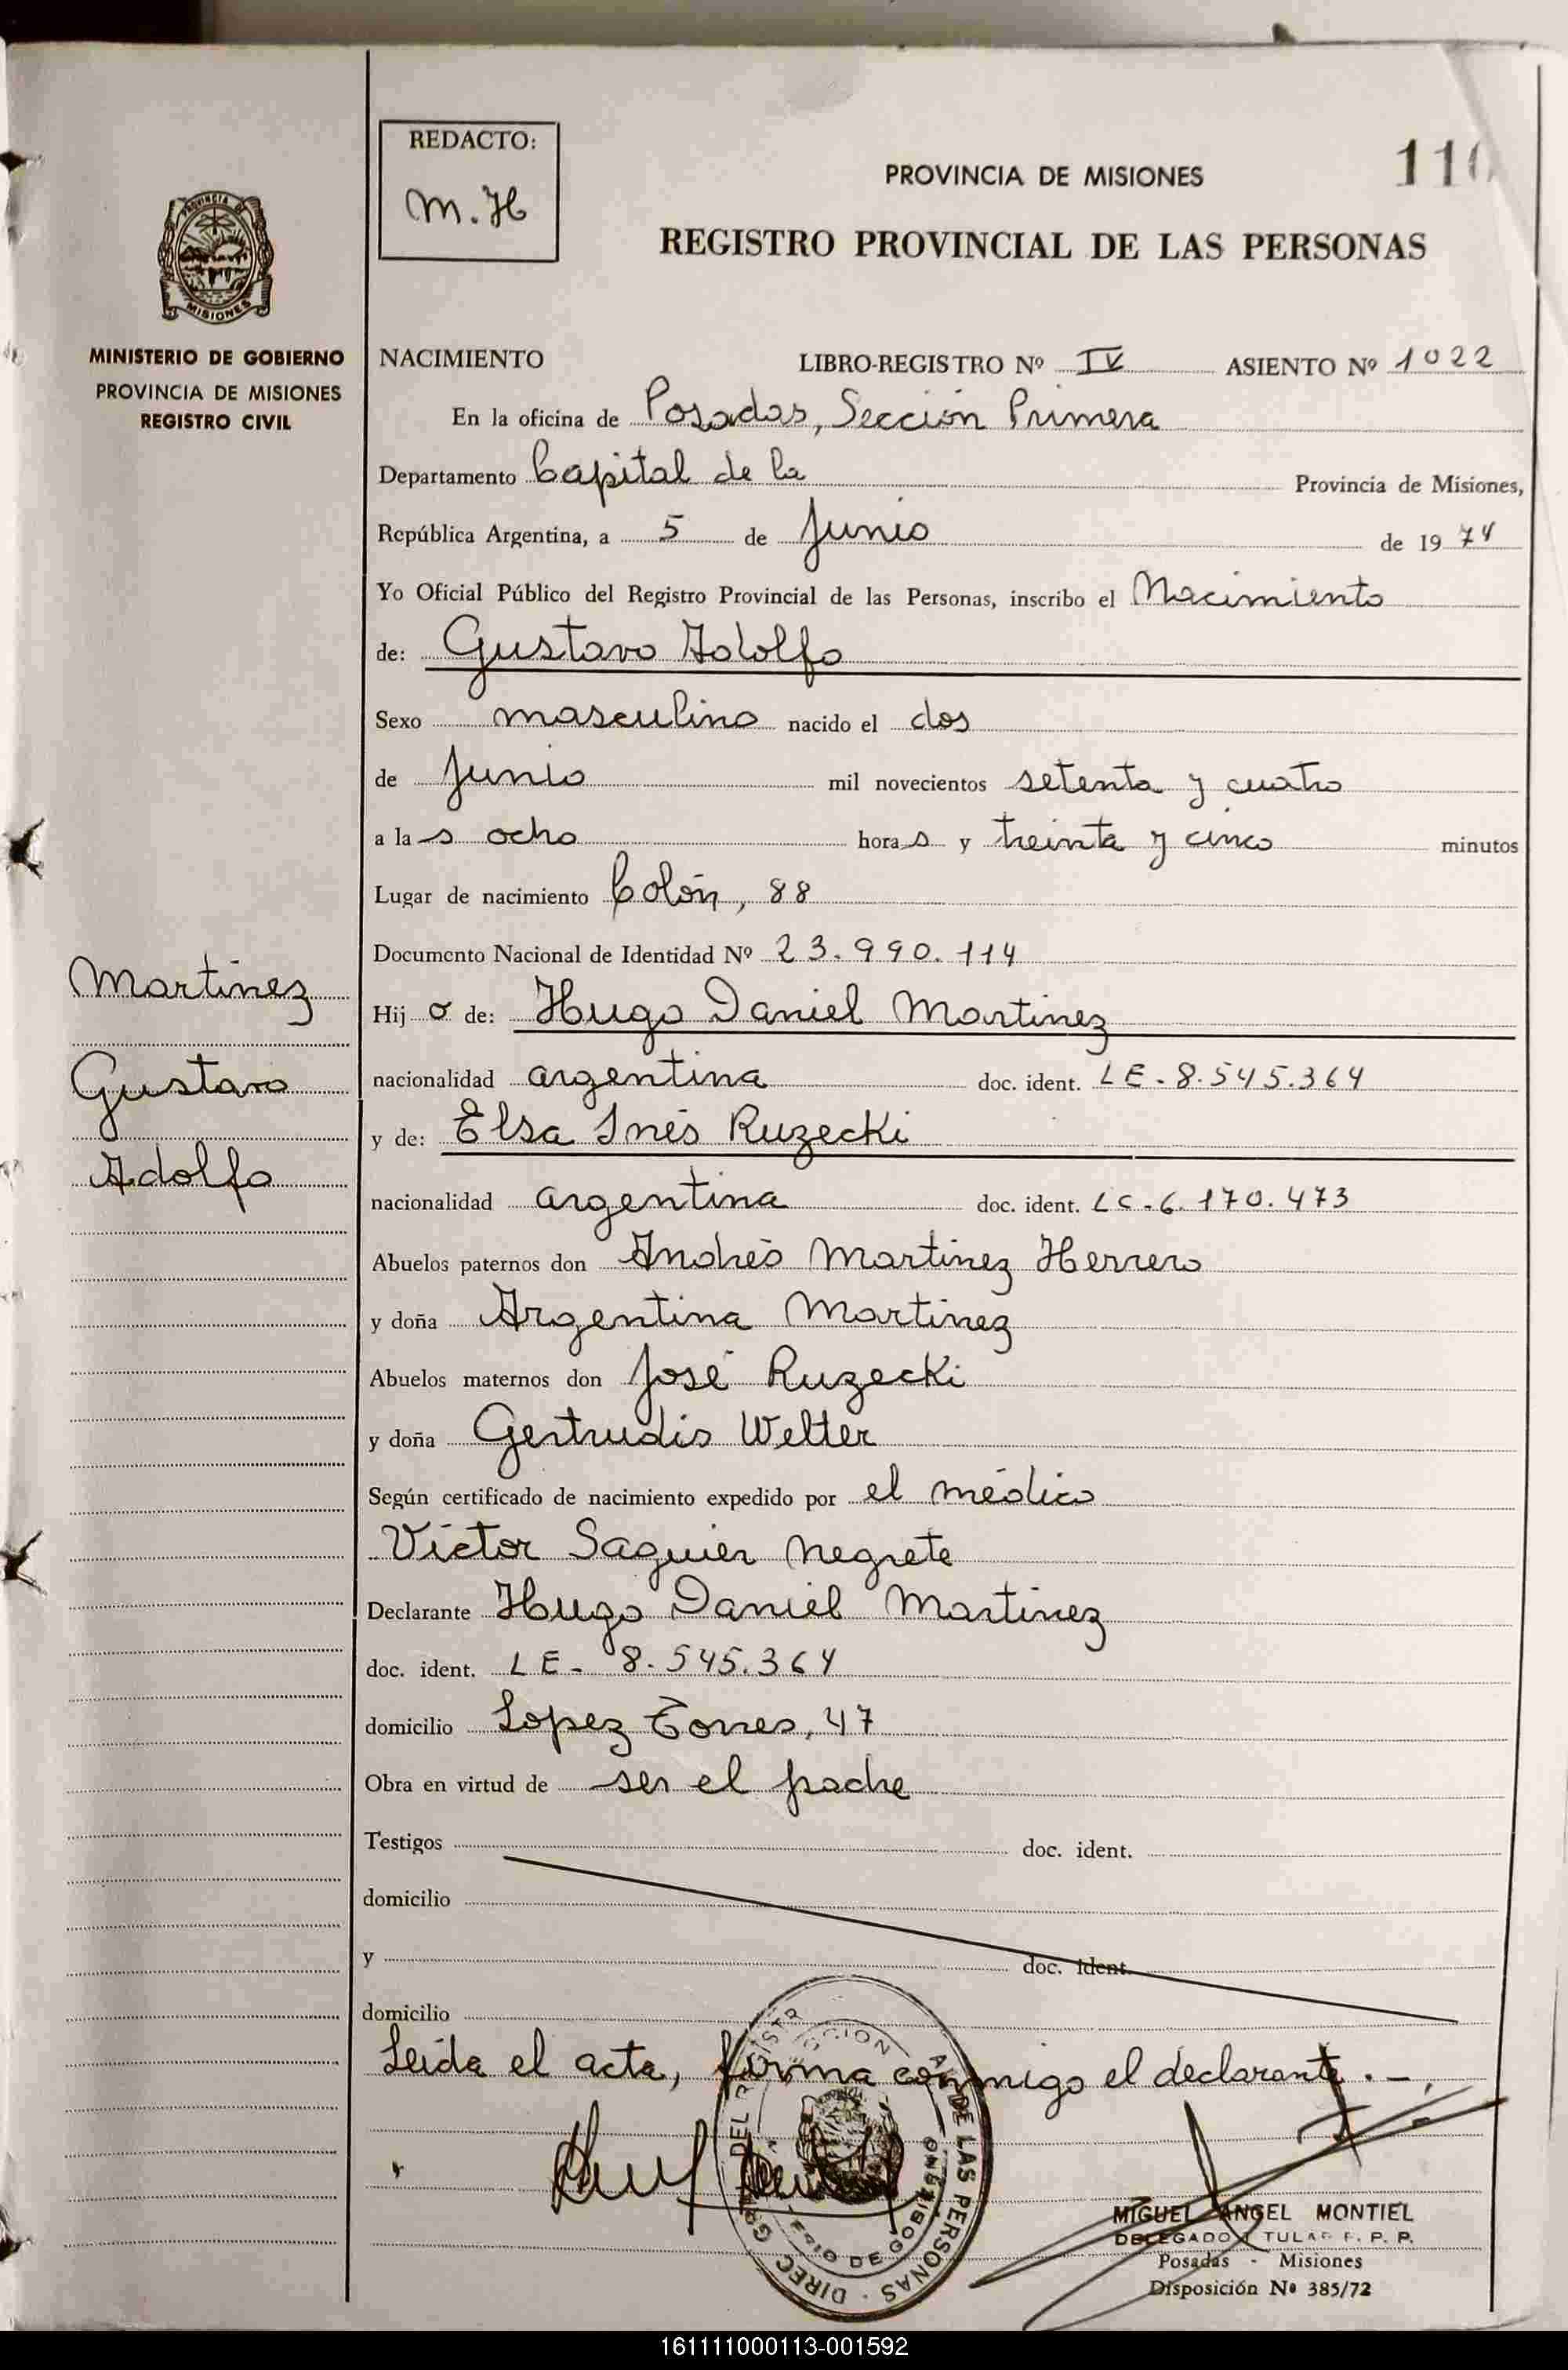 REDACTO:
M.H
PROVINCIA DE MISIONES
REGISTRO PROVINCIAL DE LAS PERSONAS
PROVINCIA DE
MISIONES
MINISTERIO DE GOBIERNO
PROVINCIA DE MISIONES
REGISTRO CIVIL
NACIMIENTO LIBRO-REGISTRO Nº IV ASIENTO Nº 1022
En la oficina de Posadas, Sección Primera
Departamento Capital de la Provincia de Misiones,
República Argentina, a 5 de Junio de 1974
Yo Oficial Público del Registro Provincial de las Personas, inscribo el Nacimiento
de: Gustavo Adolfo
Sexo masculino nacido el dos
de Junio mil novecientos setenta y cuatro
a las ocho horas y treinta y cinco minutos
Lugar de nacimiento Colón, 88
Documento Nacional de Identidad Nº 23.990.114
Martinez
Gustavo
Adolfo
Hijo de: Hugo Daniel Martinez
nacionalidad argentina doc. ident. LE-8.545.364
y de: Elsa Inés Ruzecki
nacionalidad argentina doc. ident. LC-6.170.473
Abuelos paternos don Andrés Martinez Herrero
y doña Argentina Martinez
Abuelos maternos don José Ruzecki
y doña Gertrudis Welter
Según certificado de nacimiento expedido por el médico
Víctor Saguier Negrete
Declarante Hugo Daniel Martinez
doc. ident. LE- 8.545.364
domicilio Lopez Torres, 47
Obra en virtud de ser el padre
Testigos doc. ident.
domicilio
y doc. ident.
domicilio
Leída el acta, firma conmigo el declarante.-
DE LAS PERSONAS
MIGUEL ANGEL MONTIEL
Posadas - Misiones
Disposición Nº 385/72
161111000113-001592